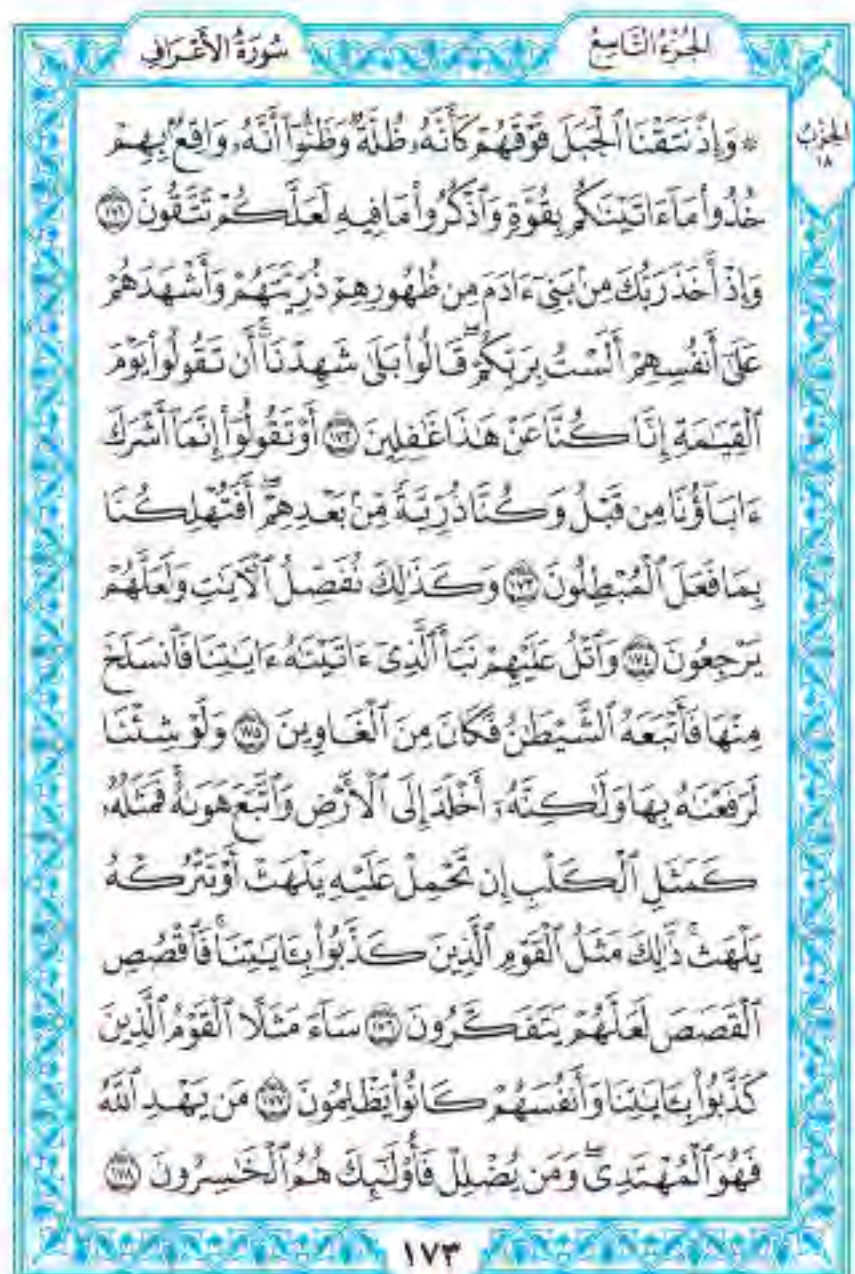 الجُزْءُ التَّاسِعُ
سُورَةُ الأَعْرَافِ
الحِزْبُ
١٨
۞ وَإِذْ نَتَقْنَا ٱلْجَبَلَ فَوْقَهُمْ كَأَنَّهُۥ ظُلَّةٌ وَظَنُّوٓا۟ أَنَّهُۥ وَاقِعٌۢ بِهِمْ
خُذُوا۟ مَآ ءَاتَيْنَٰكُم بِقُوَّةٍ وَٱذْكُرُوا۟ مَا فِيهِ لَعَلَّكُمْ تَتَّقُونَ ١٧١
وَإِذْ أَخَذَ رَبُّكَ مِنۢ بَنِىٓ ءَادَمَ مِن ظُهُورِهِمْ ذُرِّيَّتَهُمْ وَأَشْهَدَهُمْ
عَلَىٰٓ أَنفُسِهِمْ أَلَسْتُ بِرَبِّكُمْ ۖ قَالُوا۟ بَلَىٰ شَهِدْنَآ ۛ أَن تَقُولُوا۟ يَوْمَ
ٱلْقِيَٰمَةِ إِنَّا كُنَّا عَنْ هَٰذَا غَٰفِلِينَ ١٧٢ أَوْ تَقُولُوٓا۟ إِنَّمَآ أَشْرَكَ
ءَابَآؤُنَا مِن قَبْلُ وَكُنَّا ذُرِّيَّةً مِّنۢ بَعْدِهِمْ ۖ أَفَتُهْلِكُنَا
بِمَا فَعَلَ ٱلْمُبْطِلُونَ ١٧٣ وَكَذَٰلِكَ نُفَصِّلُ ٱلْءَايَٰتِ وَلَعَلَّهُمْ
يَرْجِعُونَ ١٧٤ وَٱتْلُ عَلَيْهِمْ نَبَأَ ٱلَّذِىٓ ءَاتَيْنَٰهُ ءَايَٰتِنَا فَٱنسَلَخَ
مِنْهَا فَأَتْبَعَهُ ٱلشَّيْطَٰنُ فَكَانَ مِنَ ٱلْغَاوِينَ ١٧٥ وَلَوْ شِئْنَا
لَرَفَعْنَٰهُ بِهَا وَلَٰكِنَّهُۥٓ أَخْلَدَ إِلَى ٱلْأَرْضِ وَٱتَّبَعَ هَوَىٰهُ ۚ فَمَثَلُهُۥ
كَمَثَلِ ٱلْكَلْبِ إِن تَحْمِلْ عَلَيْهِ يَلْهَثْ أَوْ تَتْرُكْهُ
يَلْهَث ۚ ذَّٰلِكَ مَثَلُ ٱلْقَوْمِ ٱلَّذِينَ كَذَّبُوا۟ بِـَٔايَٰتِنَا ۚ فَٱقْصُصِ
ٱلْقَصَصَ لَعَلَّهُمْ يَتَفَكَّرُونَ ١٧٦ سَآءَ مَثَلًا ٱلْقَوْمُ ٱلَّذِينَ
كَذَّبُوا۟ بِـَٔايَٰتِنَا وَأَنفُسَهُمْ كَانُوا۟ يَظْلِمُونَ ١٧٧ مَن يَهْدِ ٱللَّهُ
فَهُوَ ٱلْمُهْتَدِى ۖ وَمَن يُضْلِلْ فَأُو۟لَٰٓئِكَ هُمُ ٱلْخَٰسِرُونَ ١٧٨
١٧٣